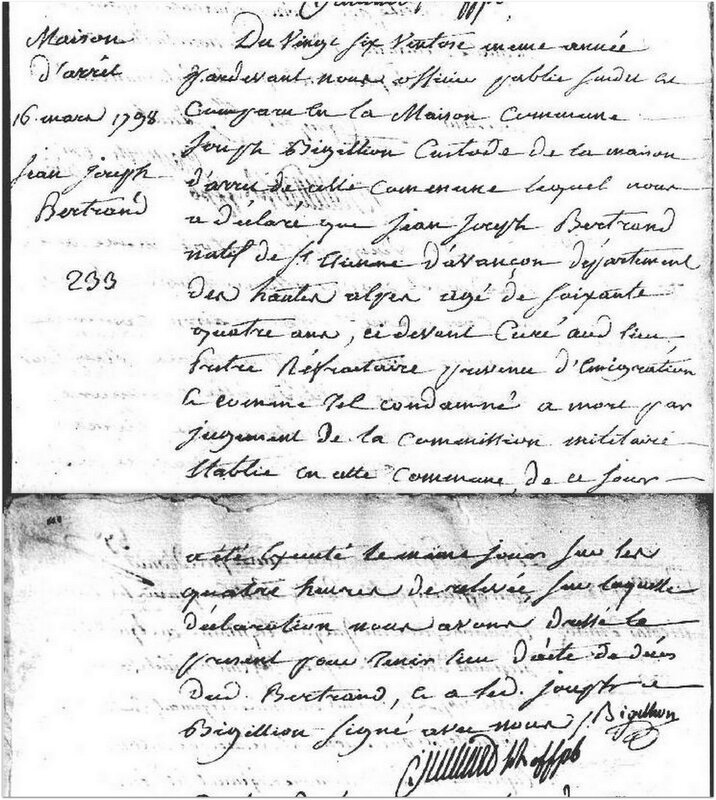 Maison
d'arrêt
16 mars 1798
Jean Joseph
Bertrand
233
Du Vingt Six Ventose même année
pardevant nous officier public susdit est
Comparu en la Maison Commune
Joseph Bigillion Custode de la maison
d'arret de cette commune lequel nous
a déclaré que Jean Joseph Bertrand
natif de St Etienne d'avançon département
des hautes alpes agé de Soixante
quatre ans, ci devant Curé aud lieu
Prêtre Réfractaire prevenu d'Emigration
& comme tel condamné a mort par
jugement de la commission militaire
Etablie en cette Commune, de ce jour
a été Executé le même jour sur les
quatre heures de relevée, sur laquelle
déclaration nous avons dressé le
present pour tenir lieu d'acte de décès
dud. Bertrand, & a led. Joseph
Bigillion signé avec nous
Bigillion
offpb